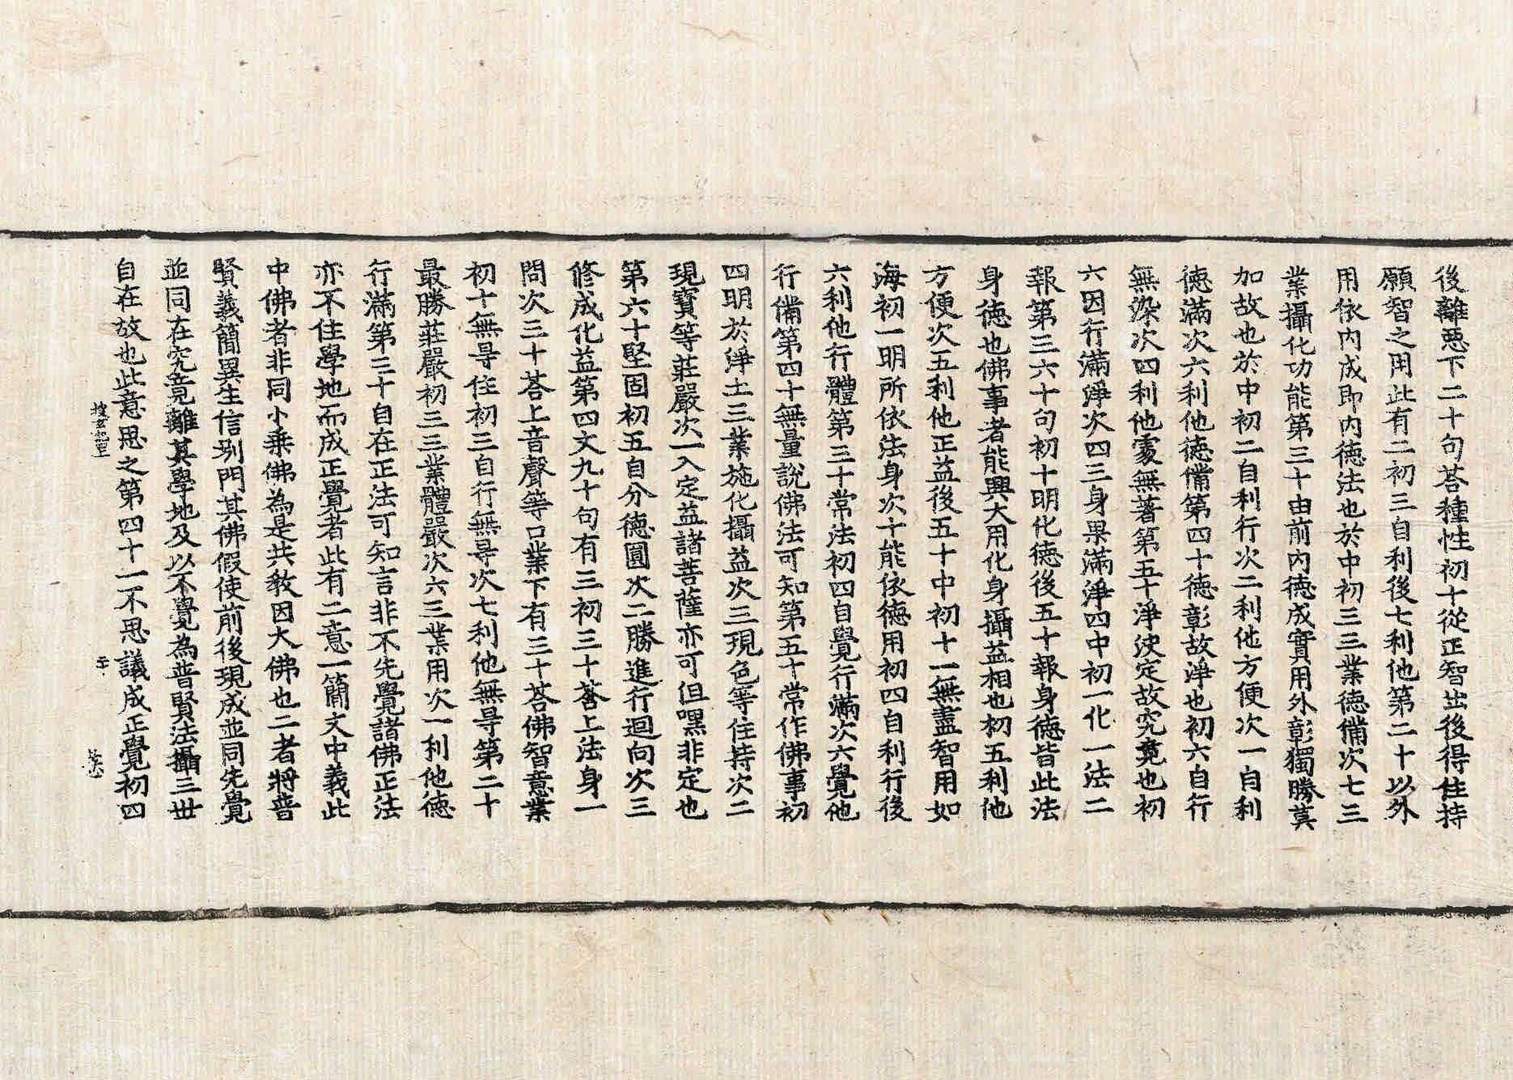 後離惡下二十句荅種性初十從正智出後得住持
願智之用此有二初三自利後七利他第二十以外
用依內成即內德法也於中初三三業德備次七三
業攝化功能第三十由前內德成實用外彰獨勝莫
加故也於中初二自利行次二利他方便次一自利
德滿次六利他德備第四十德彰故淨也初六自行
無染次四利他處無著第五十淨決定故究竟也初
六因行滿淨次四三身果滿淨四中初一化一法二
報第三六十句初十明化德後五十報身德皆此法
身德也佛事者能興大用化身攝益相也初五利他
方便次五利他正益後五十中初十一無盡智用如
海初一明所依法身次十能依德用初四自利行後
六利他行體第三十常法初四自覺行滿次六覺他
行備第四十無量說佛法可知第五十常作佛事初
四明於淨土三業施化攝益次三現色等住持次二
現寶等莊嚴次一入定益諸菩薩亦可但嘿非定也
第六十堅固初五自分德圓次二勝進行迴向次三
修成化益第四文九十句有三初三十荅上法身一
問次三十荅上音聲等口業下有三十荅佛智意業
初十無㝵住初三自行無㝵次七利他無㝵第二十
最勝莊嚴初三三業體嚴次六三業用次一利他德
行滿第三十自在正法可知言非不先覺諸佛正法
亦不住學地而成正覺者此有二意一簡文中義此
中佛者非同小乘佛為是共教因大佛也二者將普
賢義簡異生信別門其佛假使前後現成並同先覺
並同在究竟離其學地及以不覺為普賢法攝三世
自在故也此意思之第四十一不思議成正覺初四